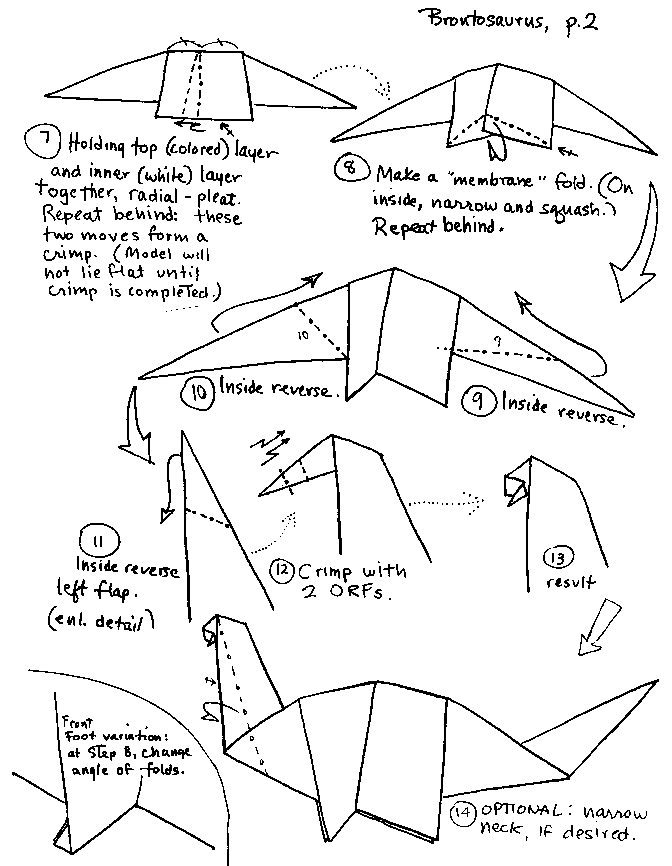 Brontosaurus, p.2
7 Holding top (colored) layer
and inner (white) layer
together, radial-pleat.
Repeat behind: these
two moves form a
crimp. (Model will
not lie flat until
crimp is completed.)
8 Make a "membrane" fold. (On
inside, narrow and squash.)
Repeat behind.
10
9
10 Inside reverse.
9 Inside reverse.
11
Inside reverse
left flap.
(enl. detail)
12 Crimp with
2 ORFs.
13
result
Front
Foot variation:
at Step 8, change
angle of folds.
14 OPTIONAL: narrow
neck, if desired.